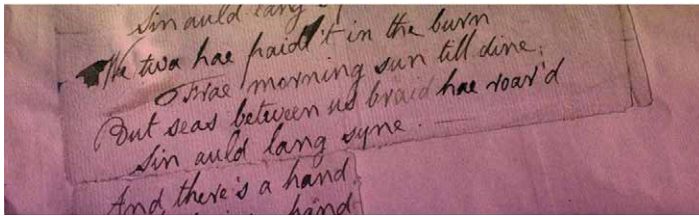 Sin auld lang
We twa hae paidl't in the burn
Frae morning sun till dine;
But seas between us braid hae roar'd
Sin auld lang syne.
And there's a hand
hand